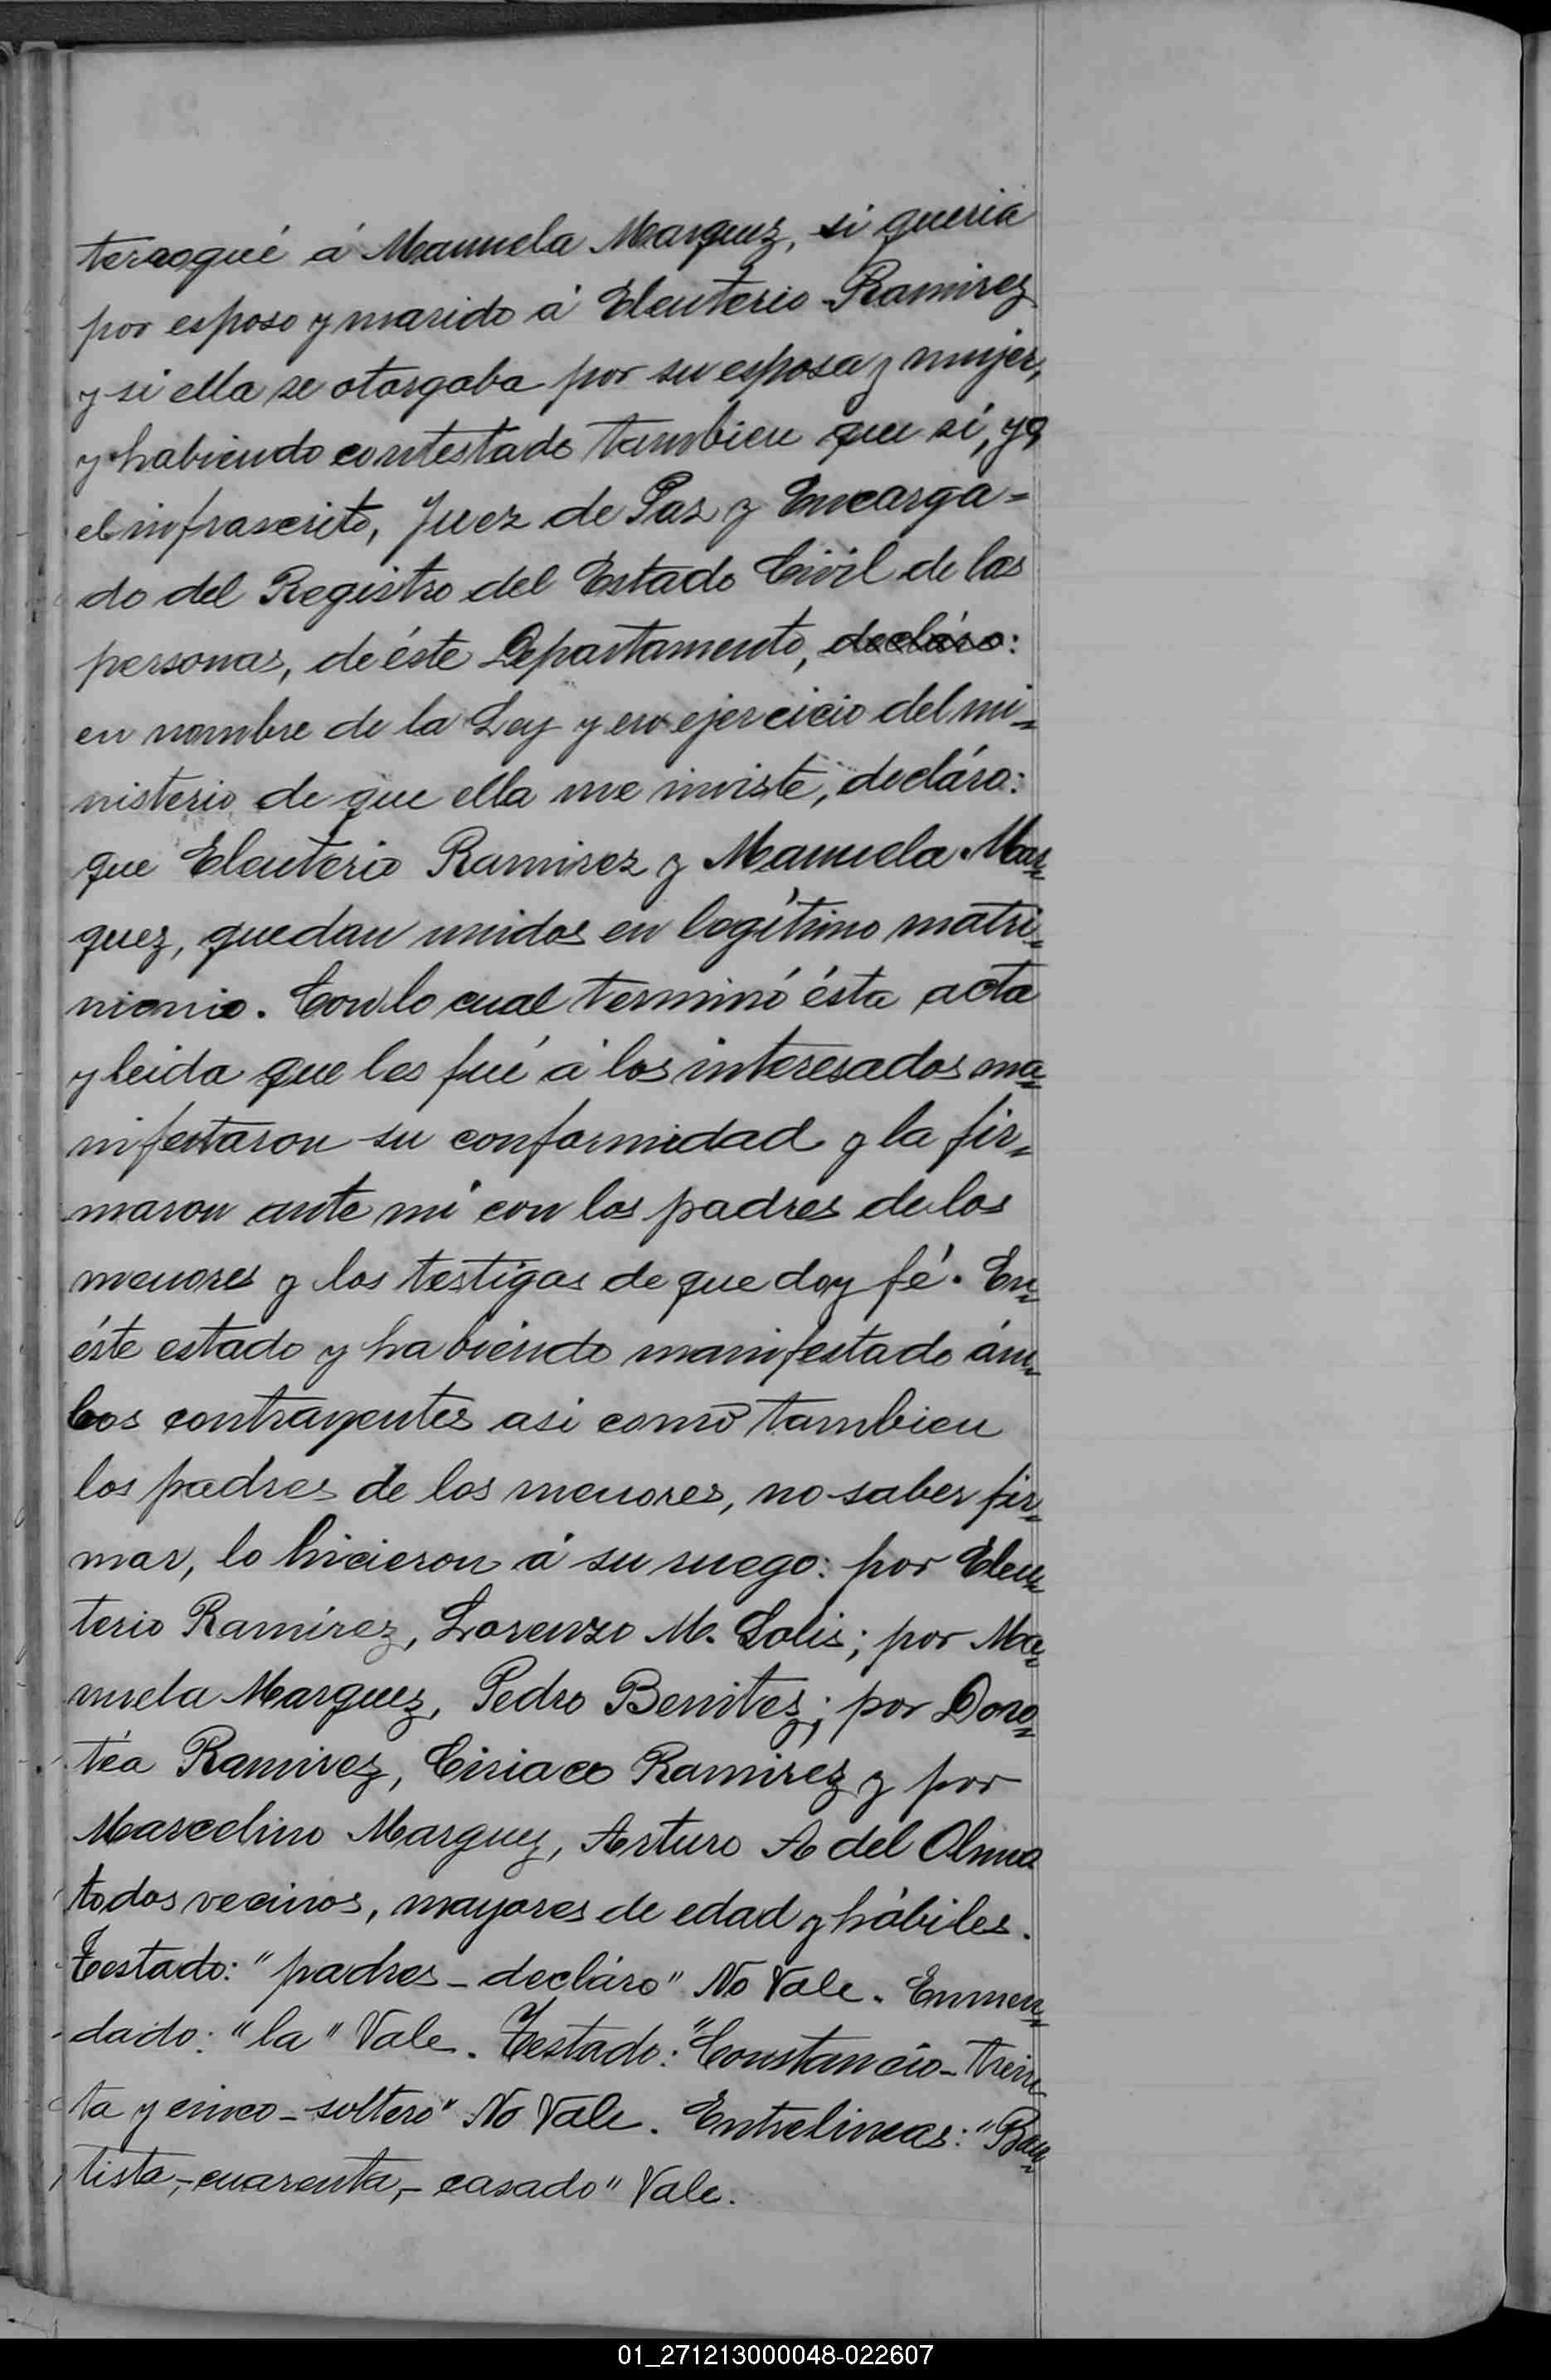 terrogué á Manuela Marquez, si queria
por esposo y marido á Eleuterio Ramirez
y si ella se otorgaba por su esposa y mujer,
y habiendo contestado tambien que sí, yo,
el infrascrito, Juez de Paz y Encarga=
do del Registro del Estado Civil de las
personas, de éste Departamento, decláro:
en nombre de la Ley y en ejercicio del mi=
nisterio de que ella me inviste, decláro:
que Eleuterio Ramirez y Manuela Mar=
quez, quedan unidos en legítimo matri=
nionio. Con lo cual terminó ésta acta
y leida que les fué á los interesados ma=
nifestaron su conformidad y la fir=
maron ante mí con los padres de los
menores y los testigos de que doy fé. En=
éste estado y habiendo manifestado ám=
bos contrayentes asi como tambien
los padres de los menores, no saber fir=
mar, lo hicieron á su ruego: por Eleu=
terio Ramírez, Lorenzo M. Solis; por Ma=
nuela Marquez, Pedro Benites; por Doro=
téa Ramirez, Ciriaco Ramirez y por
Marcelino Marquez, Arturo A del Olmo
todos vecinos, mayores de edad y hábiles.
Testado: "padres - decláro" No Vale. Enmen=
dado: "la" Vale. Testado: "Constancio - trein
ta y cinco - soltero" No Vale. Entrelineas: "Bau=
tista, - cuarenta, - casado" Vale.
01_271213000048-022607